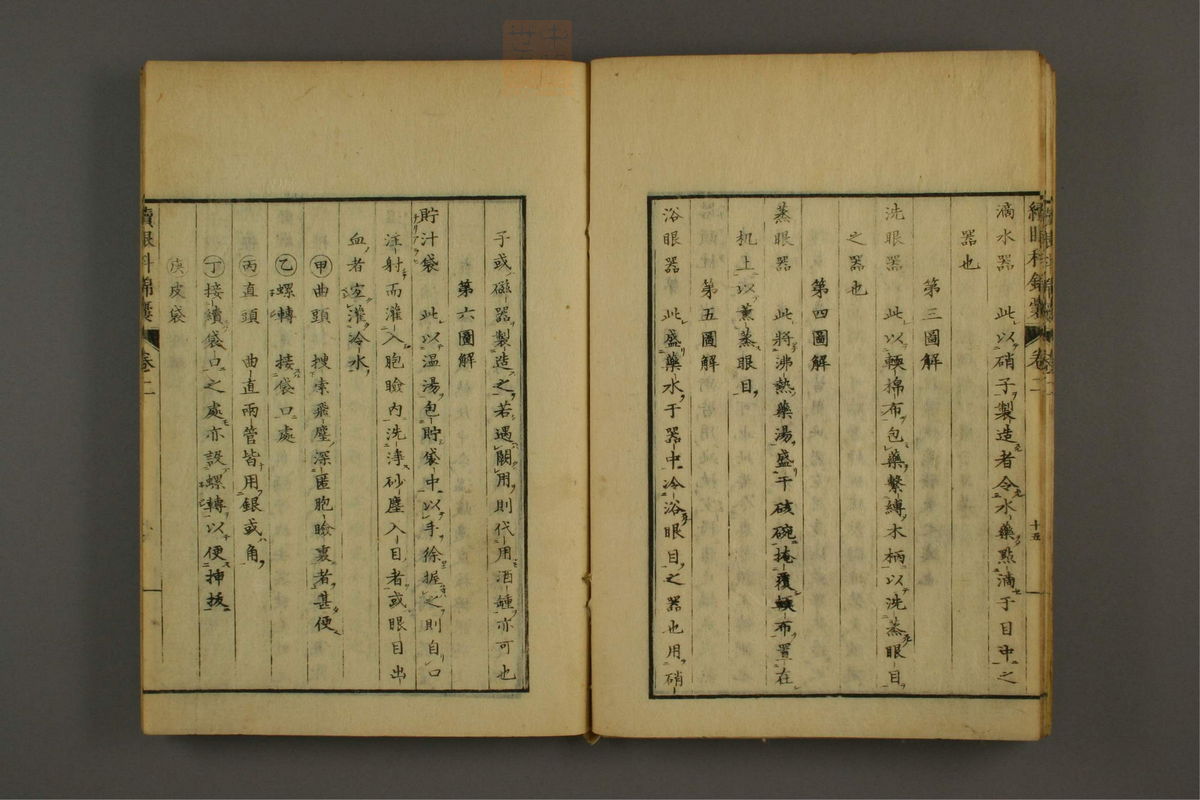 滴水器　此以硝子製造者令水藥點滴于目中之
器也
第三圖解
洗眼器　此以輭棉布包藥繫縛木柄以洗蒸眼目
之器也
第四圖解
蒸眼器　此將沸熱藥湯盛于碗掩覆輭布置在
机上以薰蒸眼目
第五圖解
浴眼器　此盛藥水于器中冷浴眼目之器也用硝
十五
子或磁器製造之若遇闕用則代用酒鍾亦可也
第六圖解
貯汁袋　此以温湯包貯袋中以手徐握之則自口
注射而灌入胞瞼内洗淨砂塵入目者或眼目出
血者宜灌冷水
甲曲頭　搜索飛塵深匿胞瞼裏者甚便
乙螺轉　接袋口處
丙直頭　曲直兩管皆用銀或角
丁接續袋口之處亦設螺轉以便揷拔
皮袋
續眼科錦囊　卷二